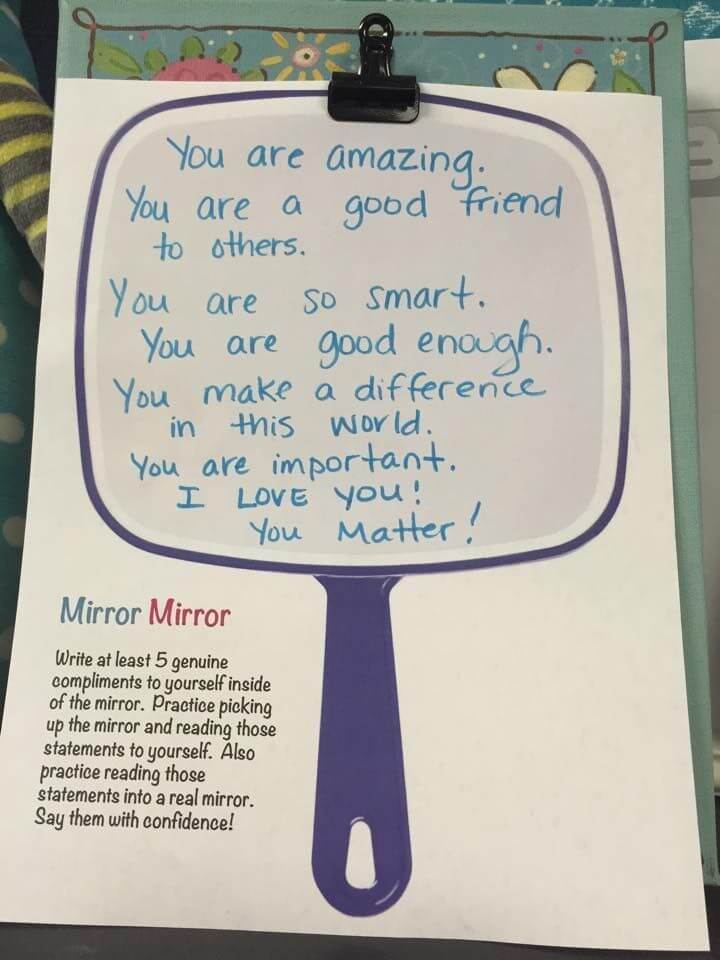 You are amazing.
You are a good friend
to others.
You are so smart.
You are good enough.
You make a difference
in this world.
You are important.
I LOVE you!
You Matter!
Mirror Mirror
Write at least 5 genuine
compliments to yourself inside
of the mirror. Practice picking
up the mirror and reading those
statements to yourself. Also
practice reading those
statements into a real mirror.
Say them with confidence!